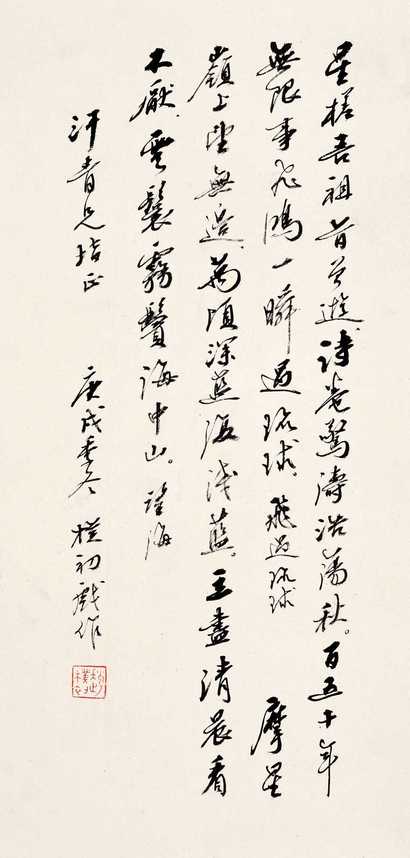 星槎吾祖昔曾遊。詩卷驚濤浩蕩秋。百五十年
無限事飛鴻一瞬過琉球 飛過琉球 摩星
嶺上望無邊萬頃深藍復淺藍。立盡清晨看
不厭雲鬟霧鬢海中山。望海
汗青兄指正 庚戌季冬 樸初戲作
趙樸初